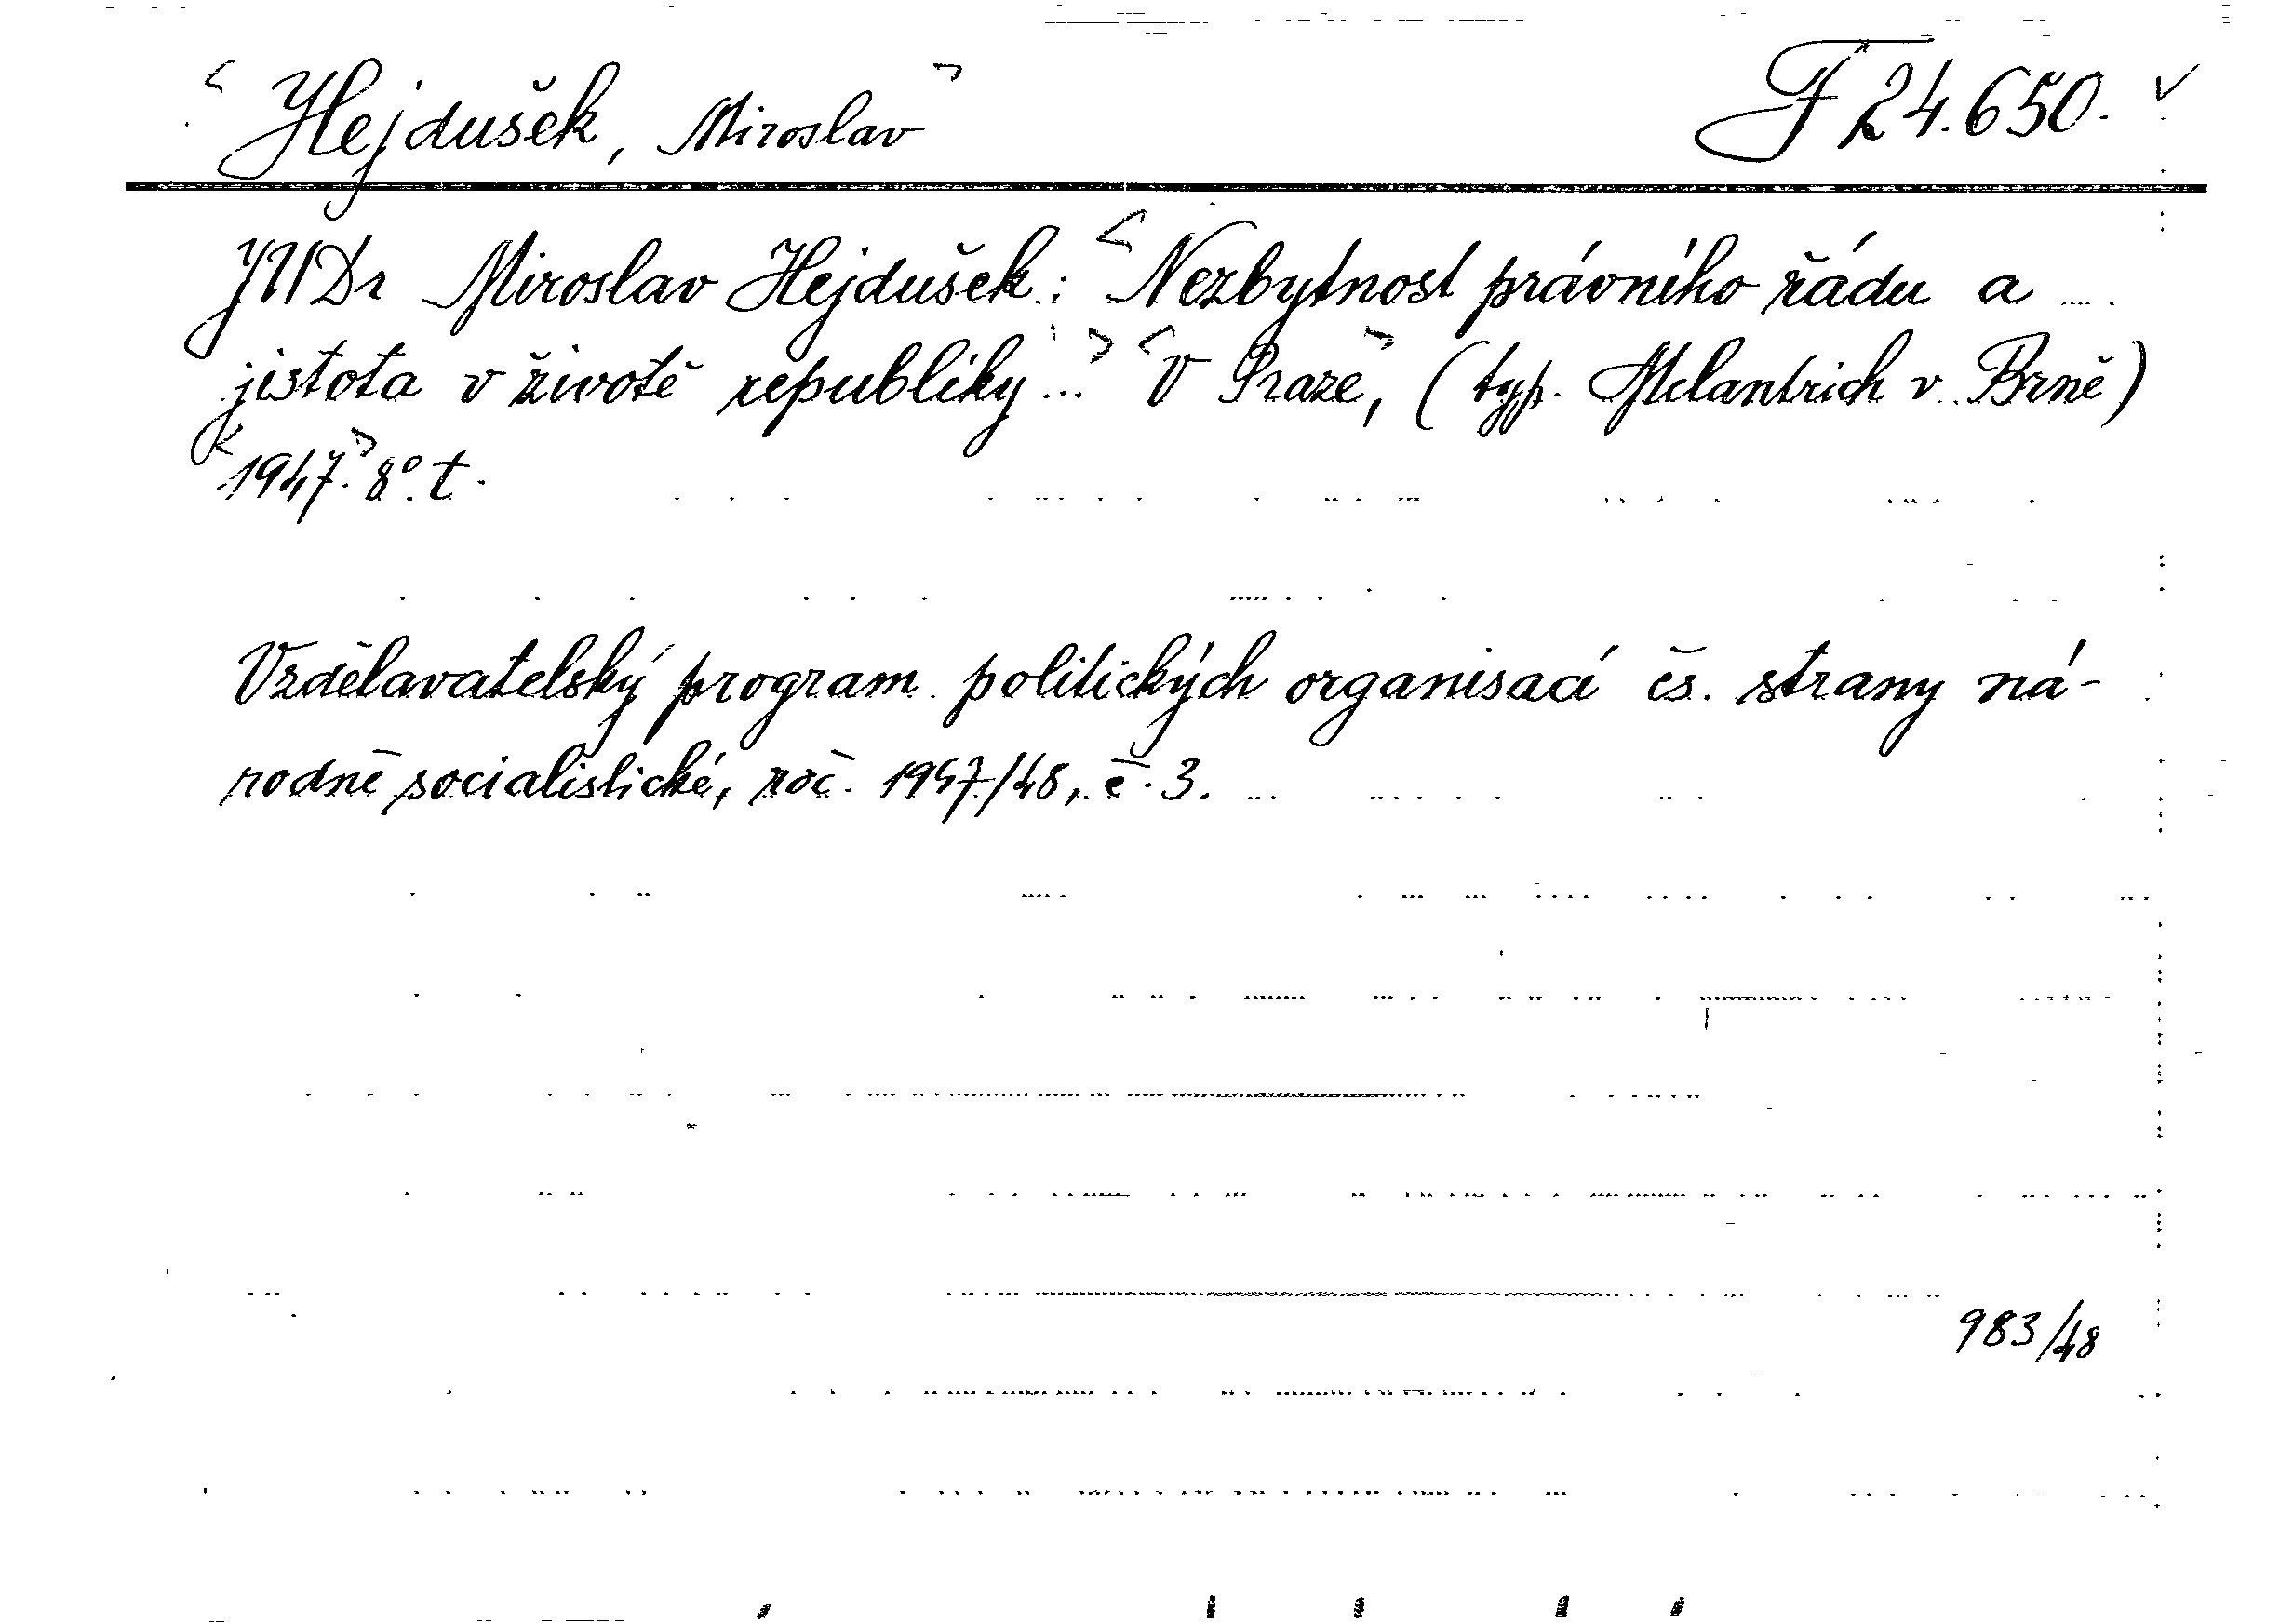 < Hejdušek, Miroslav > F 24.650. v
JUDr Miroslav Hejdušek: < Nezbytnost právního řádu a
jistota v životě republiky ... > < V Praze >, (typ. Melantrich v Brně)
< 1947. > 8°. t.
Vzdělavatelský program politických organisací čs. strany ná-
rodně socialistické, roč. 1947/48, č. 3.
983/48